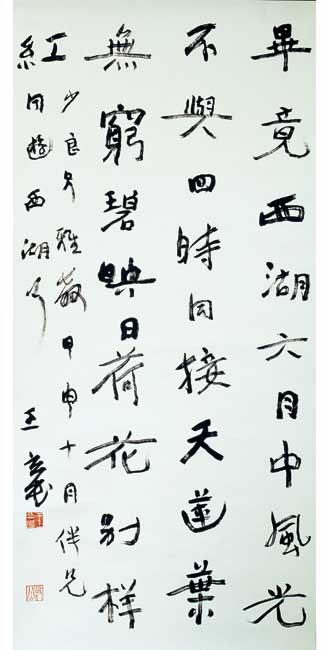 畢竟西湖六月中風光
不與四時同接天蓮葉
無窮碧映日荷花別样
紅
少良兄雅教甲申十月伴兄
同遊西湖
王